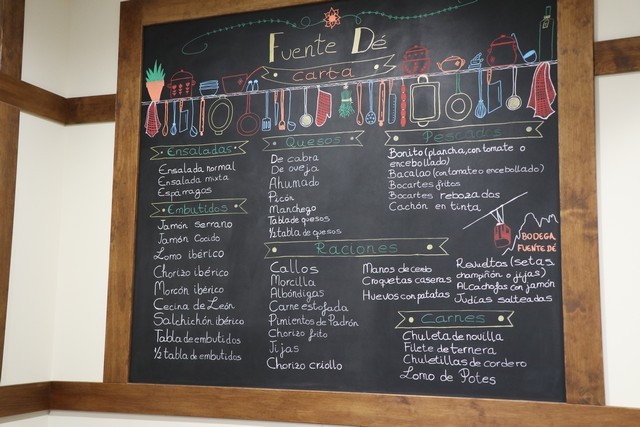 Fuente Dé
carta
Ensaladas
Ensalada normal
Ensalada mixta
Espárragos
Embutidos
Jamón serrano
Jamón Cocido
Lomo ibérico
Chorizo ibérico
Morcón ibérico
Cecina de León
Salchichón ibérico
Tabla de embutidos
½ tabla de embutidos
Quesos
De cabra
De oveja
Ahumado
Picón
Manchego
Tabla de quesos
½ tabla de quesos
Pescados
Bonito (plancha, con tomate o
encebollado)
Bacalao (con tomate o encebollado)
Bocartes fritos
Bocartes rebozados
Cachón en tinta
BODEGA
FUENTE DÉ
Raciones
Callos
Morcilla
Albóndigas
Carne estofada
Pimientos de Padrón
Chorizo frito
Jijas
Chorizo criollo
Manos de cerdo
Croquetas caseras
Huevos con patatas
Revueltos (setas,
champiñón o jijas)
Alcachofas con jamón
Judías salteadas
Carnes
Chuleta de novilla
Filete de ternera
Chuletillas de cordero
Lomo de Potes